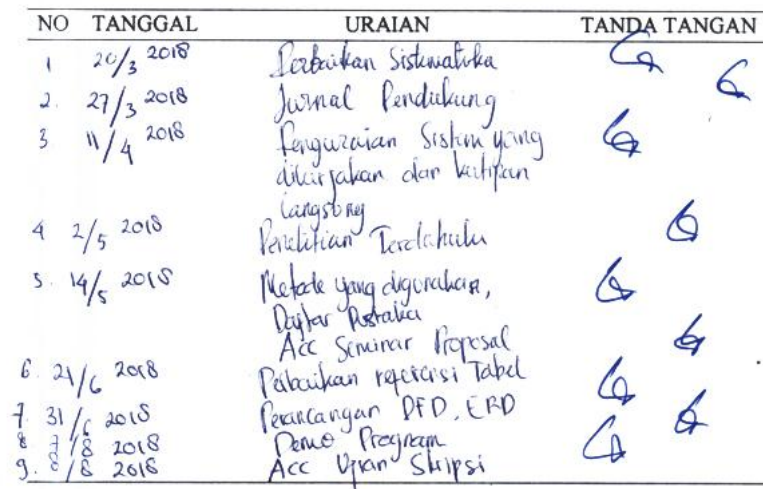 NO TANGGAL URAIAN TANDA TANGAN
1 20/3 2018 Perbaikan Sistematika
2. 27/3 2018 Jurnal Pendukung
3 11/4 2018 Penguraian Sistem yang
dikerjakan dan kutipan
langsung
4 2/5 2018 Penelitian Terdahulu
5. 14/5 2018 Metode yang digunakan,
Daftar Pustaka
Acc Seminar Proposal
6. 21/6 2018 Perbaikan referensi Tabel
7. 31/6 2018 Perancangan DFD, ERD
8 7/8 2018 Demo Program
9. 8/8 2018 Acc Ujian Skripsi